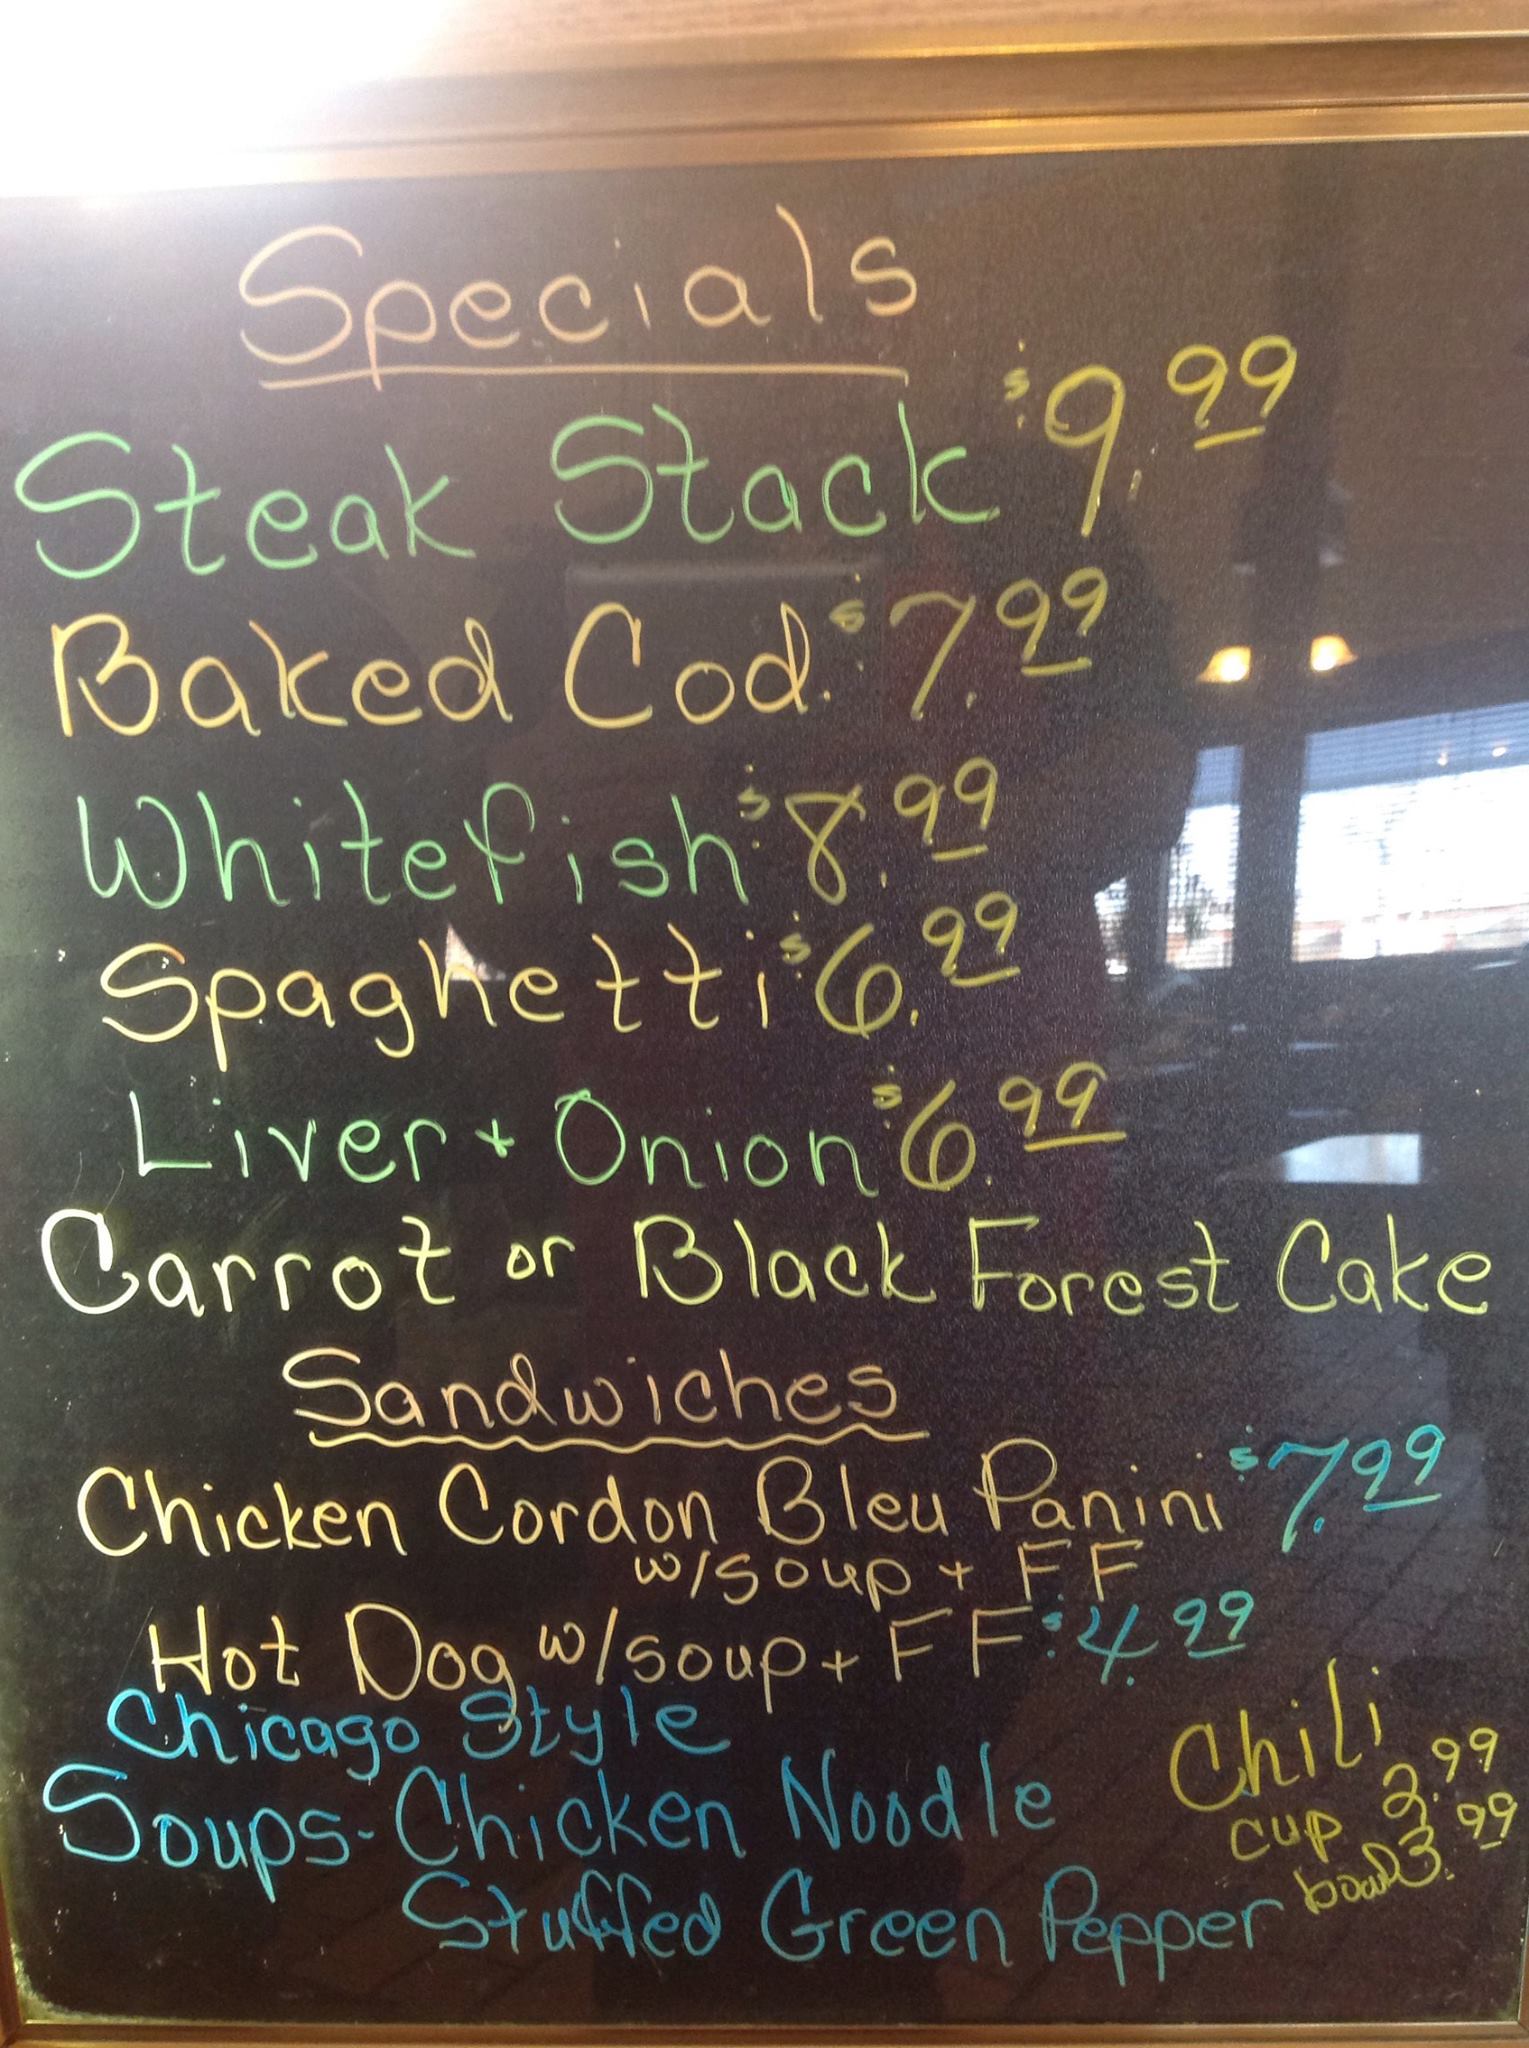 Specials
Steak Stack $9.99
Baked Cod $7.99
Whitefish $8.99
Spaghetti $6.99
Liver + Onion $6.99
Carrot or Black Forest Cake
Sandwiches
Chicken Cordon Bleu Panini $7.99
w/soup + FF
Hot Dog w/soup + FF $4.99
Chicago Style
Soups - Chicken Noodle
Stuffed Green Pepper
Chili
cup 2.99
bowl 3.99